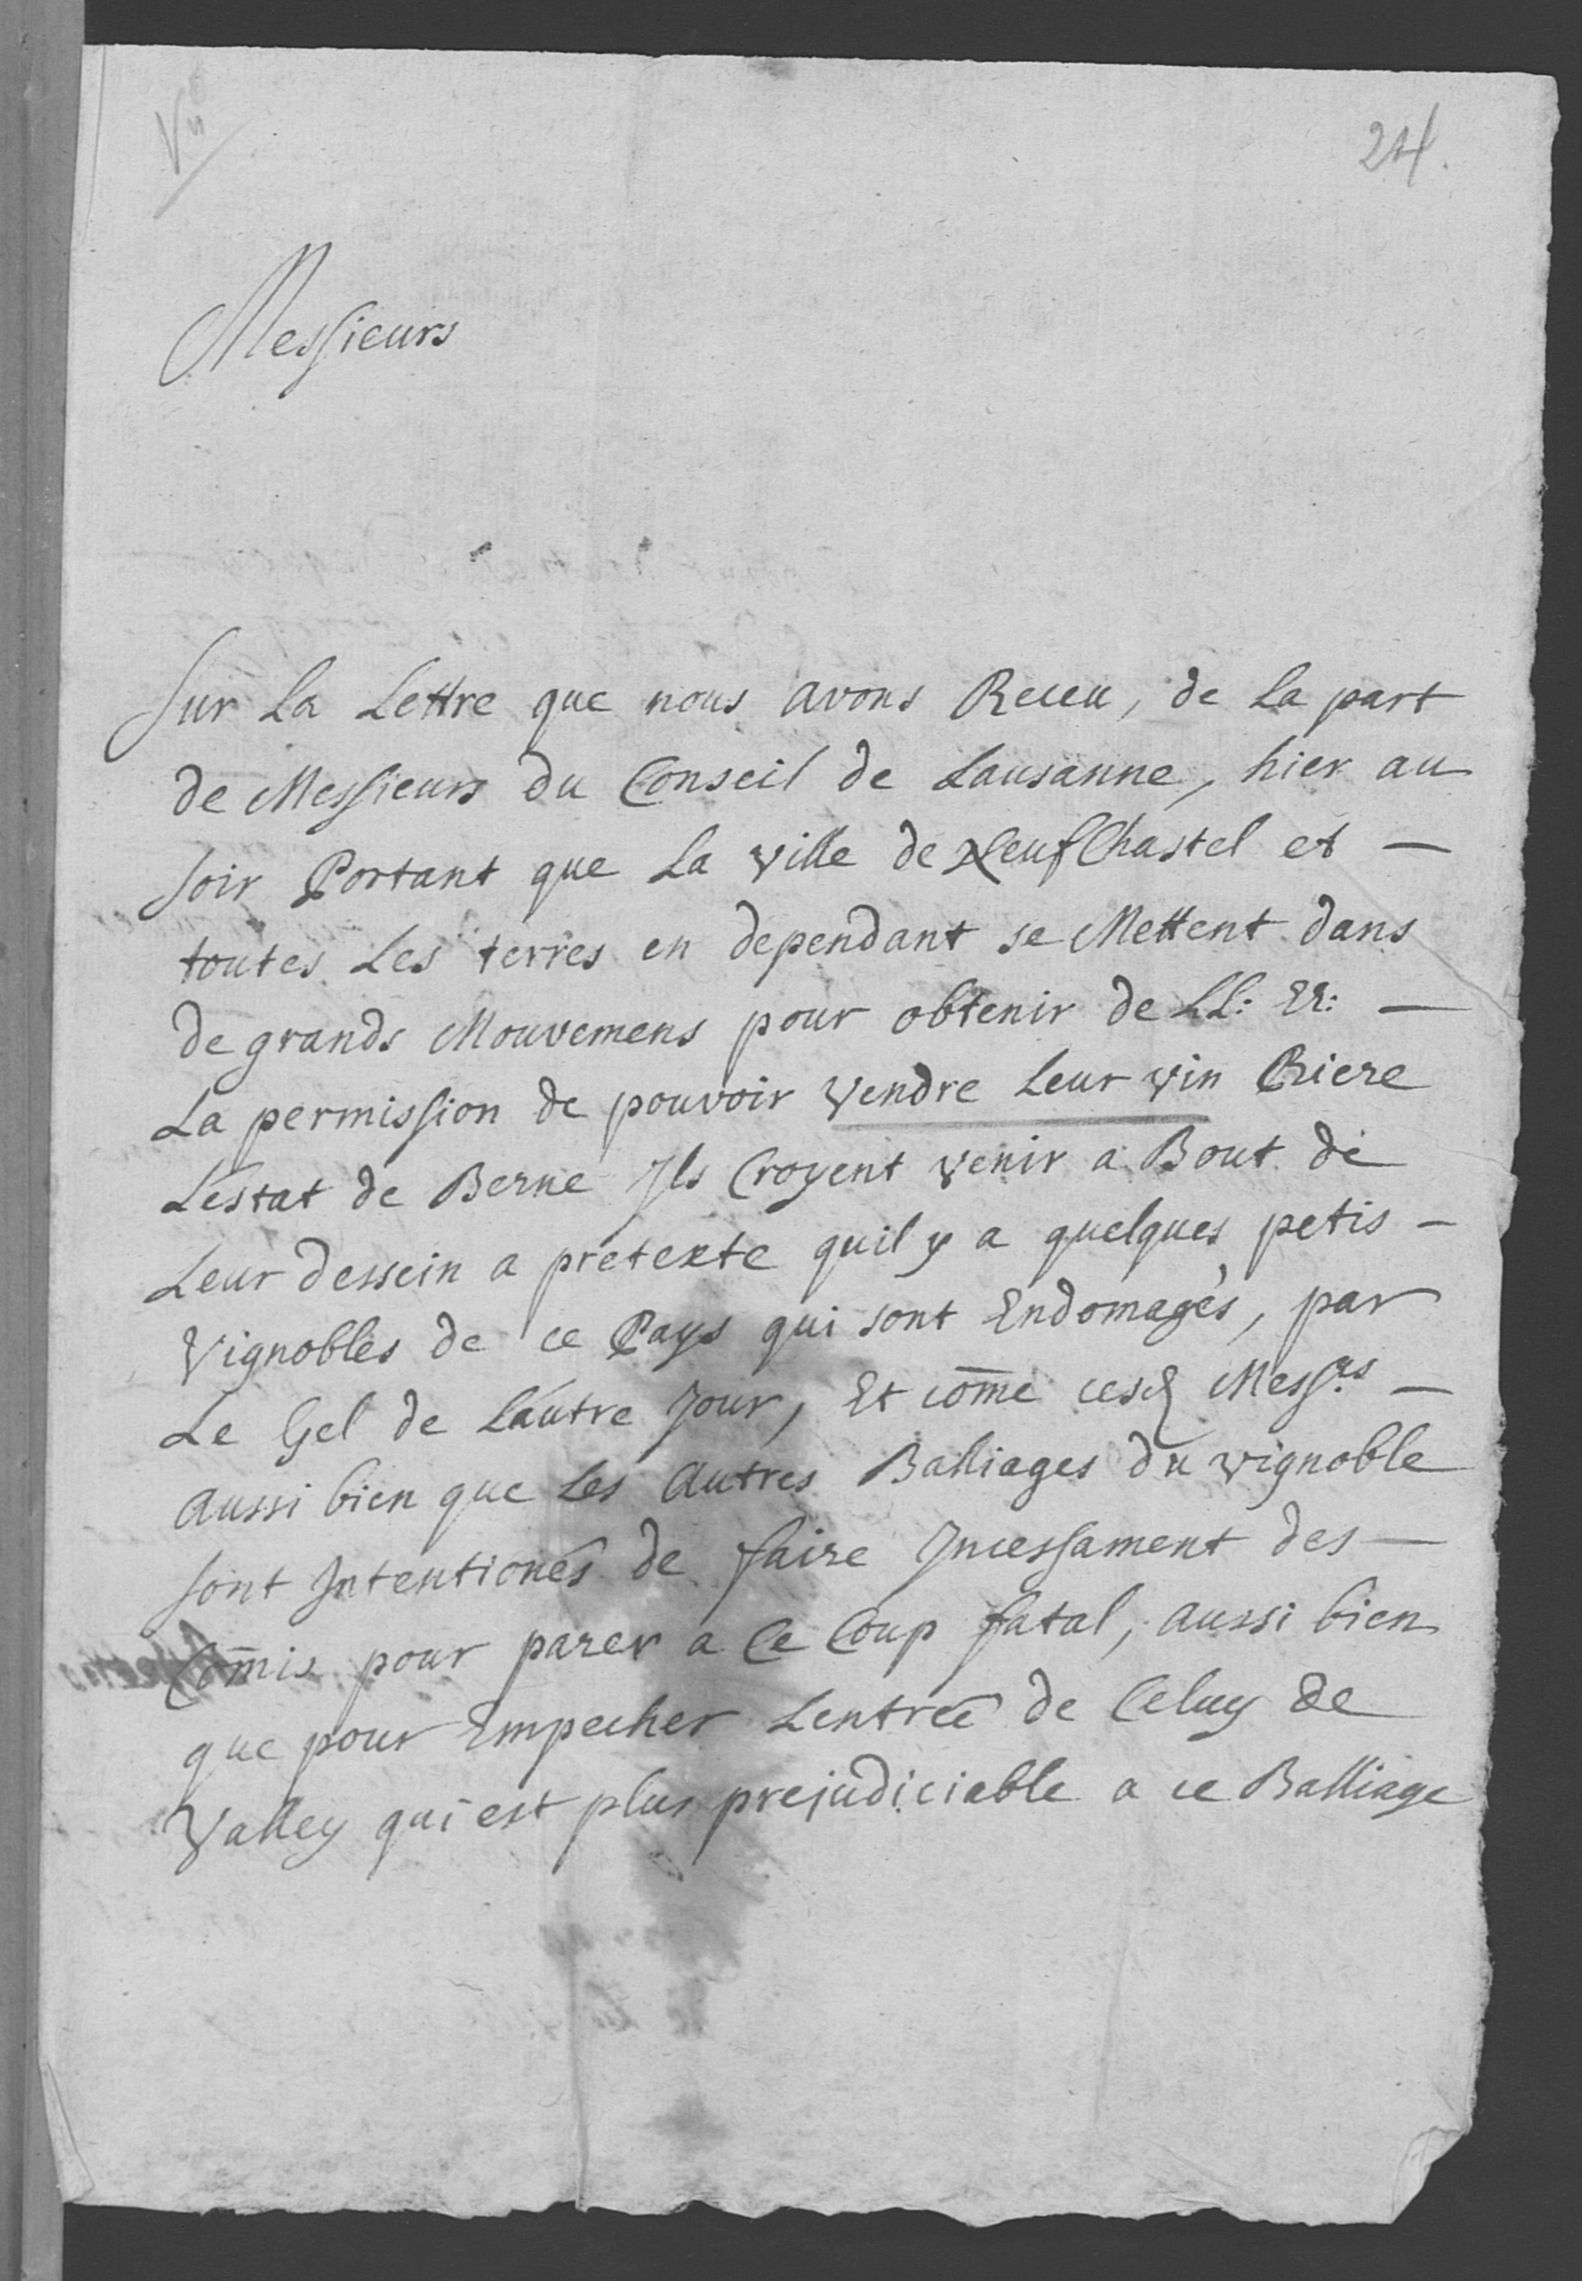 24.
Messieurs
Sur La Lettre que nous avons Receu, de La part
de Messieurs du Conseil de Lausanne, hier au
soir Portant que La ville de Neuf Chastel et —
toutes Les terres en dependant se Mettent dans
de grands Mouvemens pour obtenir de LL: EE: —
La permission de pouvoir vendre Leur vin Riere
L'estat de Berne Ils Croyent venir a Bout de
Leur dessein a pretexte quil y a quelques petis —
Vignobles de ce Pays qui sont Endomagés, par
Le Gel de L'autre Jour, Et com̄e cesd Messrs —
aussi bien que Les Autres Balliages du vignoble
sont Intentionés de faire Incessament des —
Com̄is pour parer a Ce Coup fatal, aussi bien
que pour Empecher Lentreé de Celuy de
Valley qui est plus prejudiciable a ce Balliage